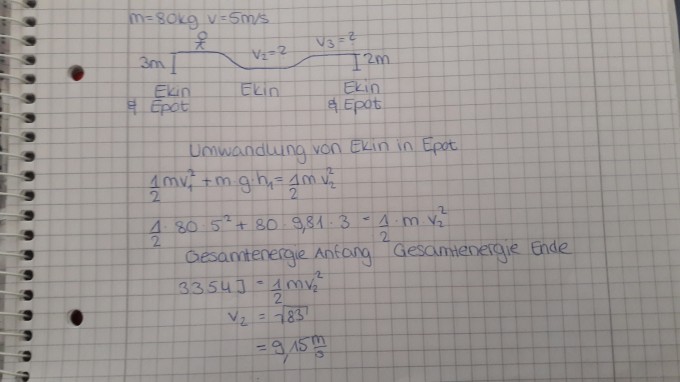 m=80kg v=5m/s
3m V₂=? V₃=? 2m
Ekin Ekin Ekin
& Epot & Epot
Umwandlung von Ekin in Epot
1/2 mv₁² + m·g·h₁ = 1/2 m v₂²
1/2 · 80 · 5² + 80 · 9,81 · 3 = 1/2 · m v₂²
Gesamtenergie Anfang Gesamtenergie Ende
3354J = 1/2 mv₂²
V₂ = √83
= 9,15 m/s